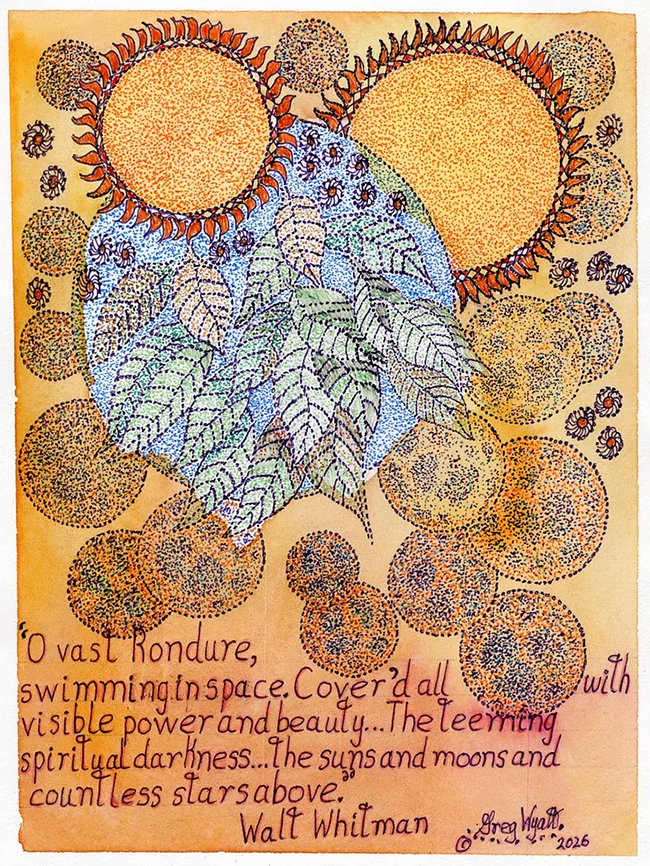 "O vast Rondure,
swimming in space. Cover'd all with
visible power and beauty...The teeming
spiritual darkness...the suns and moons and
countless stars above."
Walt Whitman
© Greg Wyatt. 2026